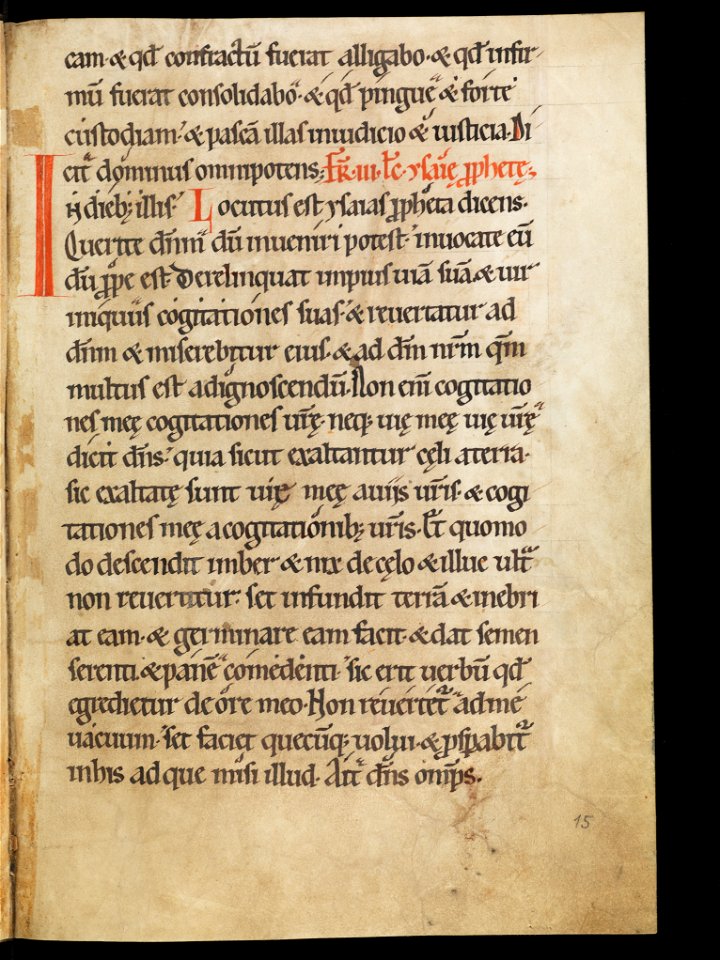 eam· & qd̄ confractū fuerat alligabo· & qd̄ infir-
mū fuerat consolidabo· & qd̄ pingue & forte
custodiam· & pascā illas in iudicio & iusticia· Di
cit dominus omnipotens; Fr̄· iii· Lc̄· ysaię ꝓphetę;
In dieb; illis· Locutus est ysaias ꝓpheta dicens·
Querite dn̄m dū inueniri potest· inuocate eū
dū ꝓpe est· Derelinquat impius uiā suā· & uir
iniquus cogitationes suas· & reuertatur ad
dn̄m & miserebitur eius· & ad dm̄ nr̄m qm̄
multus est ad ignoscendū· Non eni cogitatio
nes meę cogitationes ur̄ę· neq; uię meę uię ur̄ę
dicit dn̄s· quia sicut exaltantur cęli a terra·
sic exaltatę sunt uię meę a uiis ur̄is· & cogi
tationes meę a cogitationib; ur̄is· Et quomo
do descendit imber & nix de cęlo & illuc ult̄
non reuertitur· set infundit terrā & inebri
at eam· & germinare eam facit· & dat semen
serenti· & panē comedenti· sic erit uerbū qd̄
egredietur de ore meo· Non reuertet̄ ad me
uacuum· set faciet quecūq; uolui· & ꝓspabit̄
in his ad que misi illud· Ait dn̄s omp̄s·
15